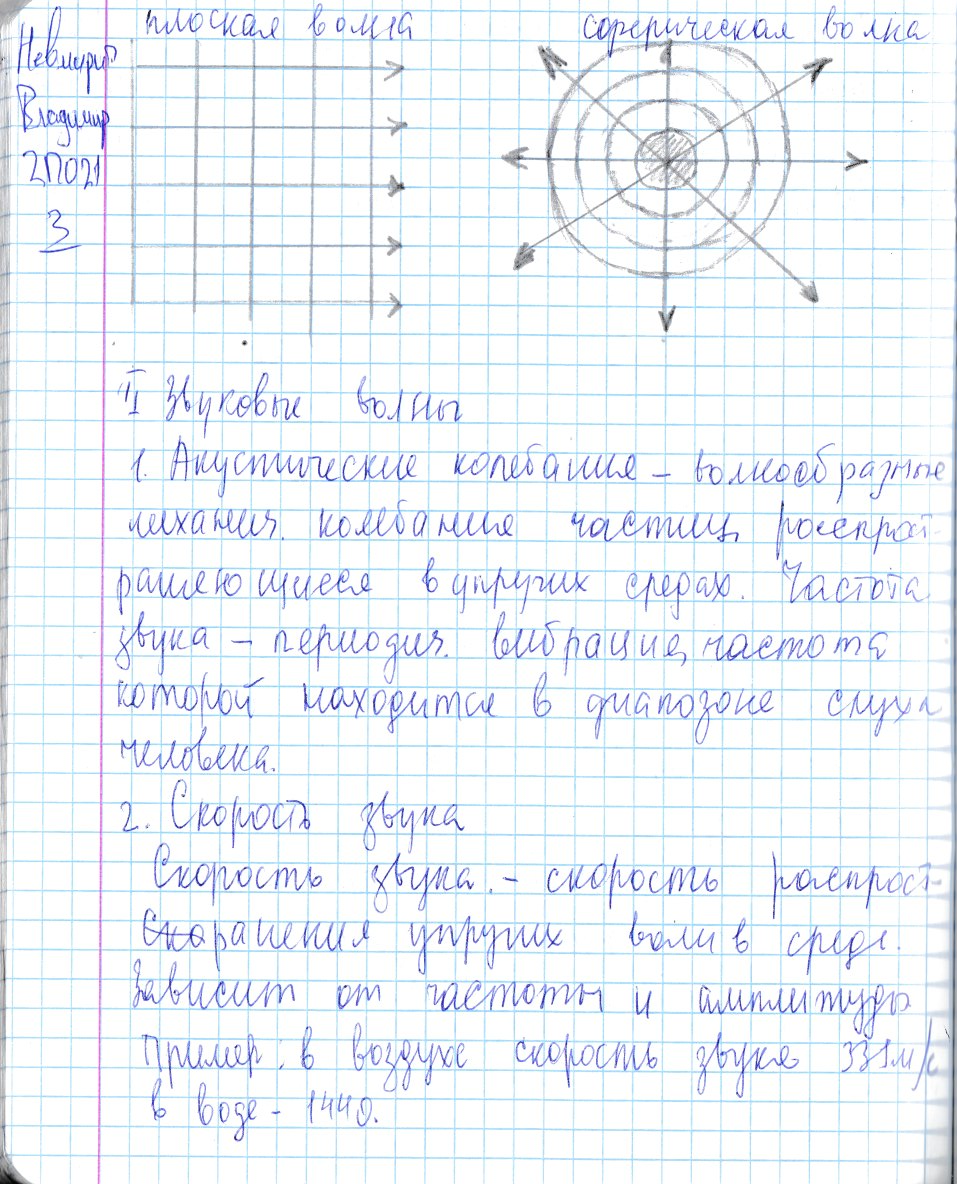 плоская волна
сферическая волна
Невмирит
Владимир
2П021
3
II Звуковые волны
1. Акустические колебания – волнообразные
механич. колебания частиц, распрост-
раняющиеся в упругих средах. Частота
звука – периодич. вибрация, частота
которой находится в диапозоне слуха
человека.
2. Скорость звука
Скорость звука. – скорость распрост-
ранения упругих волн в среде.
Зависит от частоты и амплитуды
Пример: в воздухе скорость звука 331м/с
в воде – 1440.